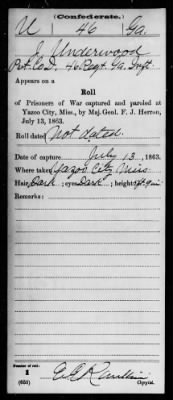 (Confederate.)
U 46 Ga.
J. Underwood
Pvt. Co. D. 46 Regt. Ga. Inft.
Appears on a
Roll
of Prisoners of War captured and paroled at
Yazoo City, Miss., by Maj. Genl. F. J. Herron,
July 13, 1863.
Roll dated Not dated.
Date of capture July 13, 1863.
Where taken Yazoo City Miss
Hair, Dark; eyes Dark; height
Remarks:
Number of roll:
1
(651)
Copyist.